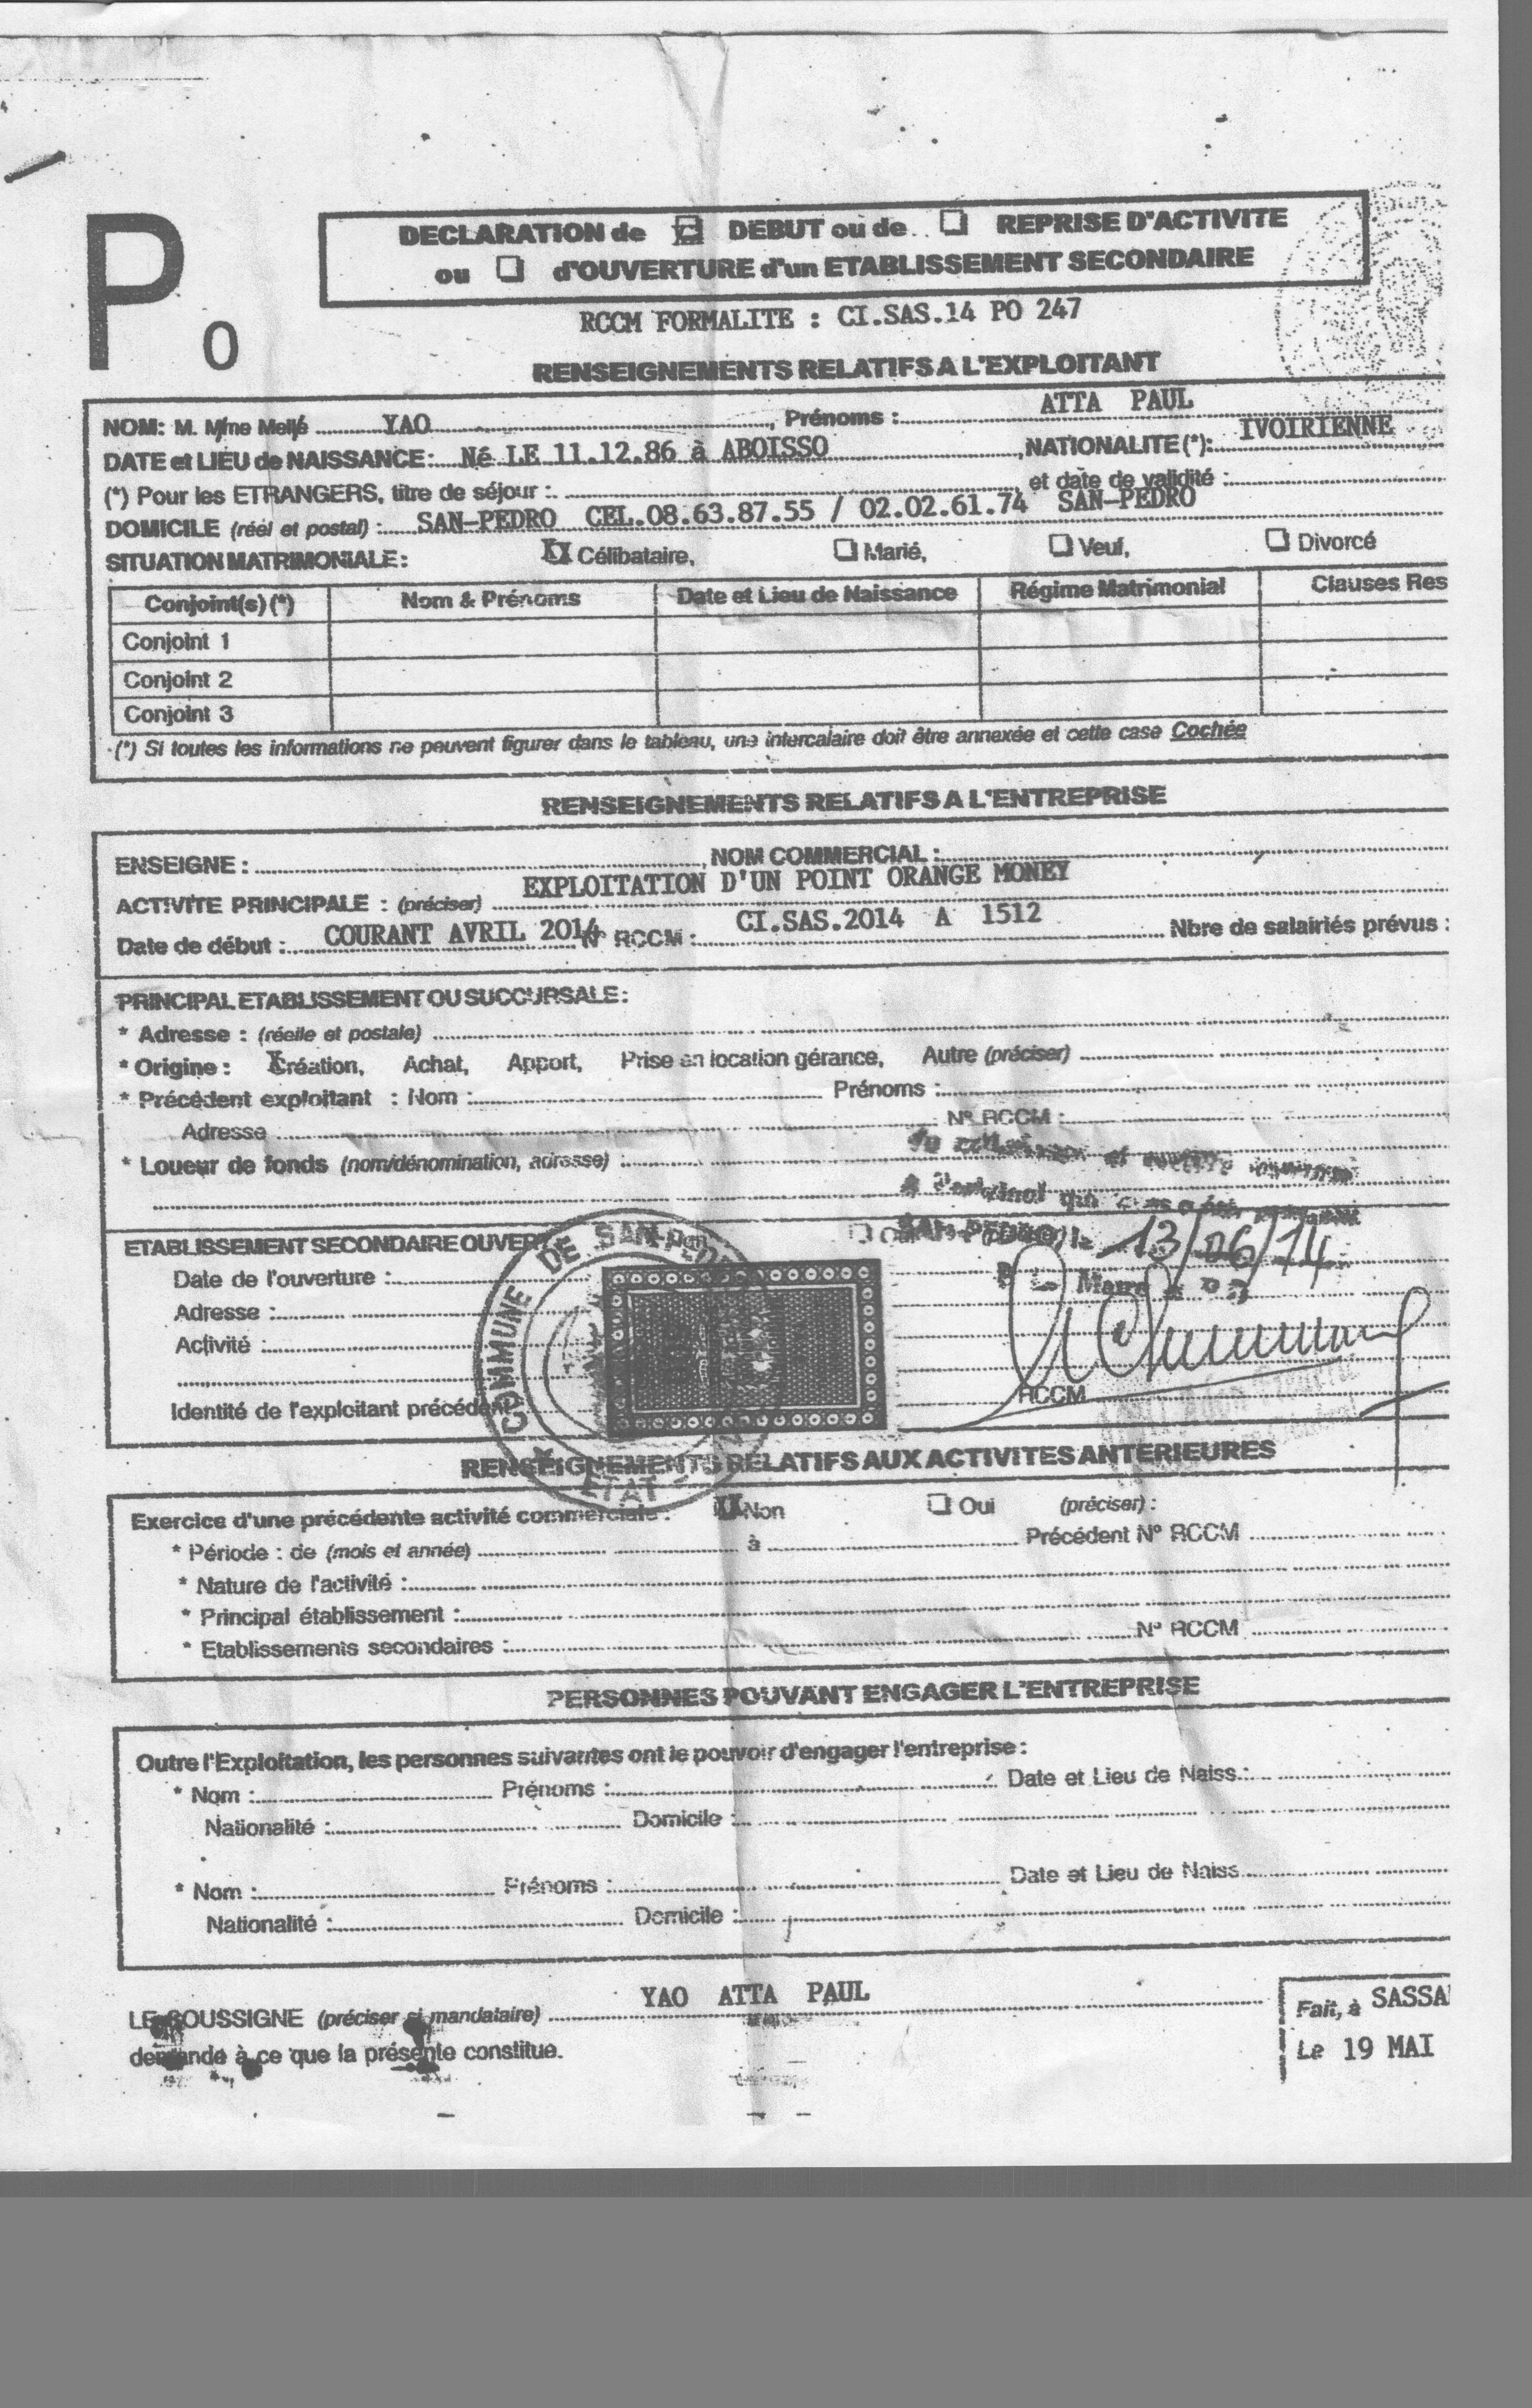 P0
DECLARATION de ☒ DEBUT ou de ☐ REPRISE D'ACTIVITE
ou ☐ d'OUVERTURE d'un ETABLISSEMENT SECONDAIRE
RCCM FORMALITE : CI.SAS.14 PO 247
RENSEIGNEMENTS RELATIFS A L'EXPLOITANT
NOM: M. Mme Melle YAO, Prénoms : ATTA PAUL
DATE et LIEU de NAISSANCE: Né LE 11.12.86 à ABOISSO, NATIONALITE (*): IVOIRIENNE
(*) Pour les ETRANGERS, titre de séjour : et date de validité :
DOMICILE (réel et postal) : SAN-PEDRO CEL.08.63.87.55 / 02.02.61.74 SAN-PEDRO
SITUATION MATRIMONIALE: ☒ Célibataire, ☐ Marié, ☐ Veuf, ☐ Divorcé
Conjoint(s) (*) Nom & Prénoms Date et Lieu de Naissance Régime Matrimonial Clauses Res
Conjoint 1
Conjoint 2
Conjoint 3
(*) Si toutes les informations ne peuvent figurer dans le tableau, une intercalaire doit être annexée et cette case Cochée
RENSEIGNEMENTS RELATIFS A L'ENTREPRISE
ENSEIGNE : , NOM COMMERCIAL :
ACTIVITE PRINCIPALE : (préciser) EXPLOITATION D'UN POINT ORANGE MONEY
Date de début : COURANT AVRIL 2014 N° RCCM : CI.SAS.2014 A 1512 Nbre de salairiés prévus :
PRINCIPAL ETABLISSEMENT OU SUCCURSALE :
* Adresse : (réelle et postale)
* Origine : X Création, Achat, Apport, Prise en location gérance, Autre (préciser)
* Précédent exploitant : Nom : Prénoms :
Adresse N° RCCM :
* Loueur de fonds (nom/dénomination, adresse) :
à l'original qui
SAN-PEDRO, le 13/06/14
ETABLISSEMENT SECONDAIRE OUVERT
Date de l'ouverture :
Le Maire
Adresse :
Activité :
Identité de l'exploitant précédent : RCCM
COMMUNE DE SAN-PEDRO
ETAT
RENSEIGNEMENTS RELATIFS AUX ACTIVITES ANTERIEURES
Exercice d'une précédente activité commerciale : ☒ Non ☐ Oui (préciser) :
* Période : de (mois et année) à Précédent N° RCCM
* Nature de l'activité :
* Principal établissement :
* Etablissements secondaires : N° RCCM
PERSONNES POUVANT ENGAGER L'ENTREPRISE
Outre l'Exploitation, les personnes suivantes ont le pouvoir d'engager l'entreprise :
* Nom : Prénoms : Date et Lieu de Naiss.:
Nationalité : Domicile :
* Nom : Prénoms : Date et Lieu de Naiss.
Nationalité : Domicile :
LE SOUSSIGNE (préciser si mandataire) YAO ATTA PAUL
demande à ce que la présente constitue.
Fait, à SASSA
Le 19 MAI